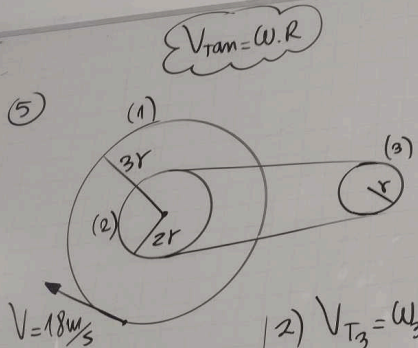 V_Tan = ω.R
5
(1)
3r
(3)
r
(2)
2r
V=18m/s
2) V_T3 = ω3